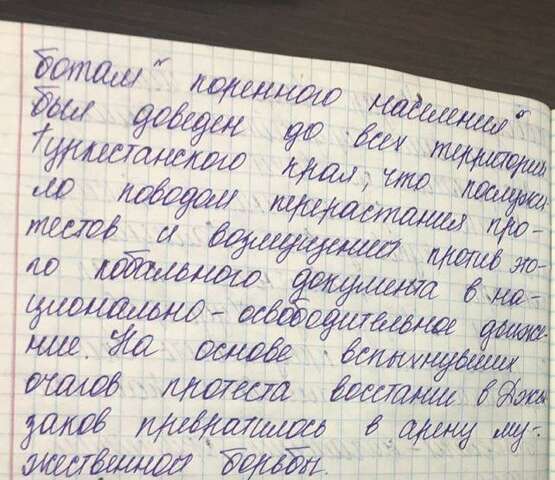 ботам" коренного населения"
был доведен до всех территорий
Туркестанского края, что послужи
ло поводом перерастания про-
тестов и возмущений против это-
го кабального документа в на-
ционально-освободительное движе-
ние. На основе вспыхнувших
очагов протеста восстание в Джи
заков превратилось в арену му-
жественной борьбы.